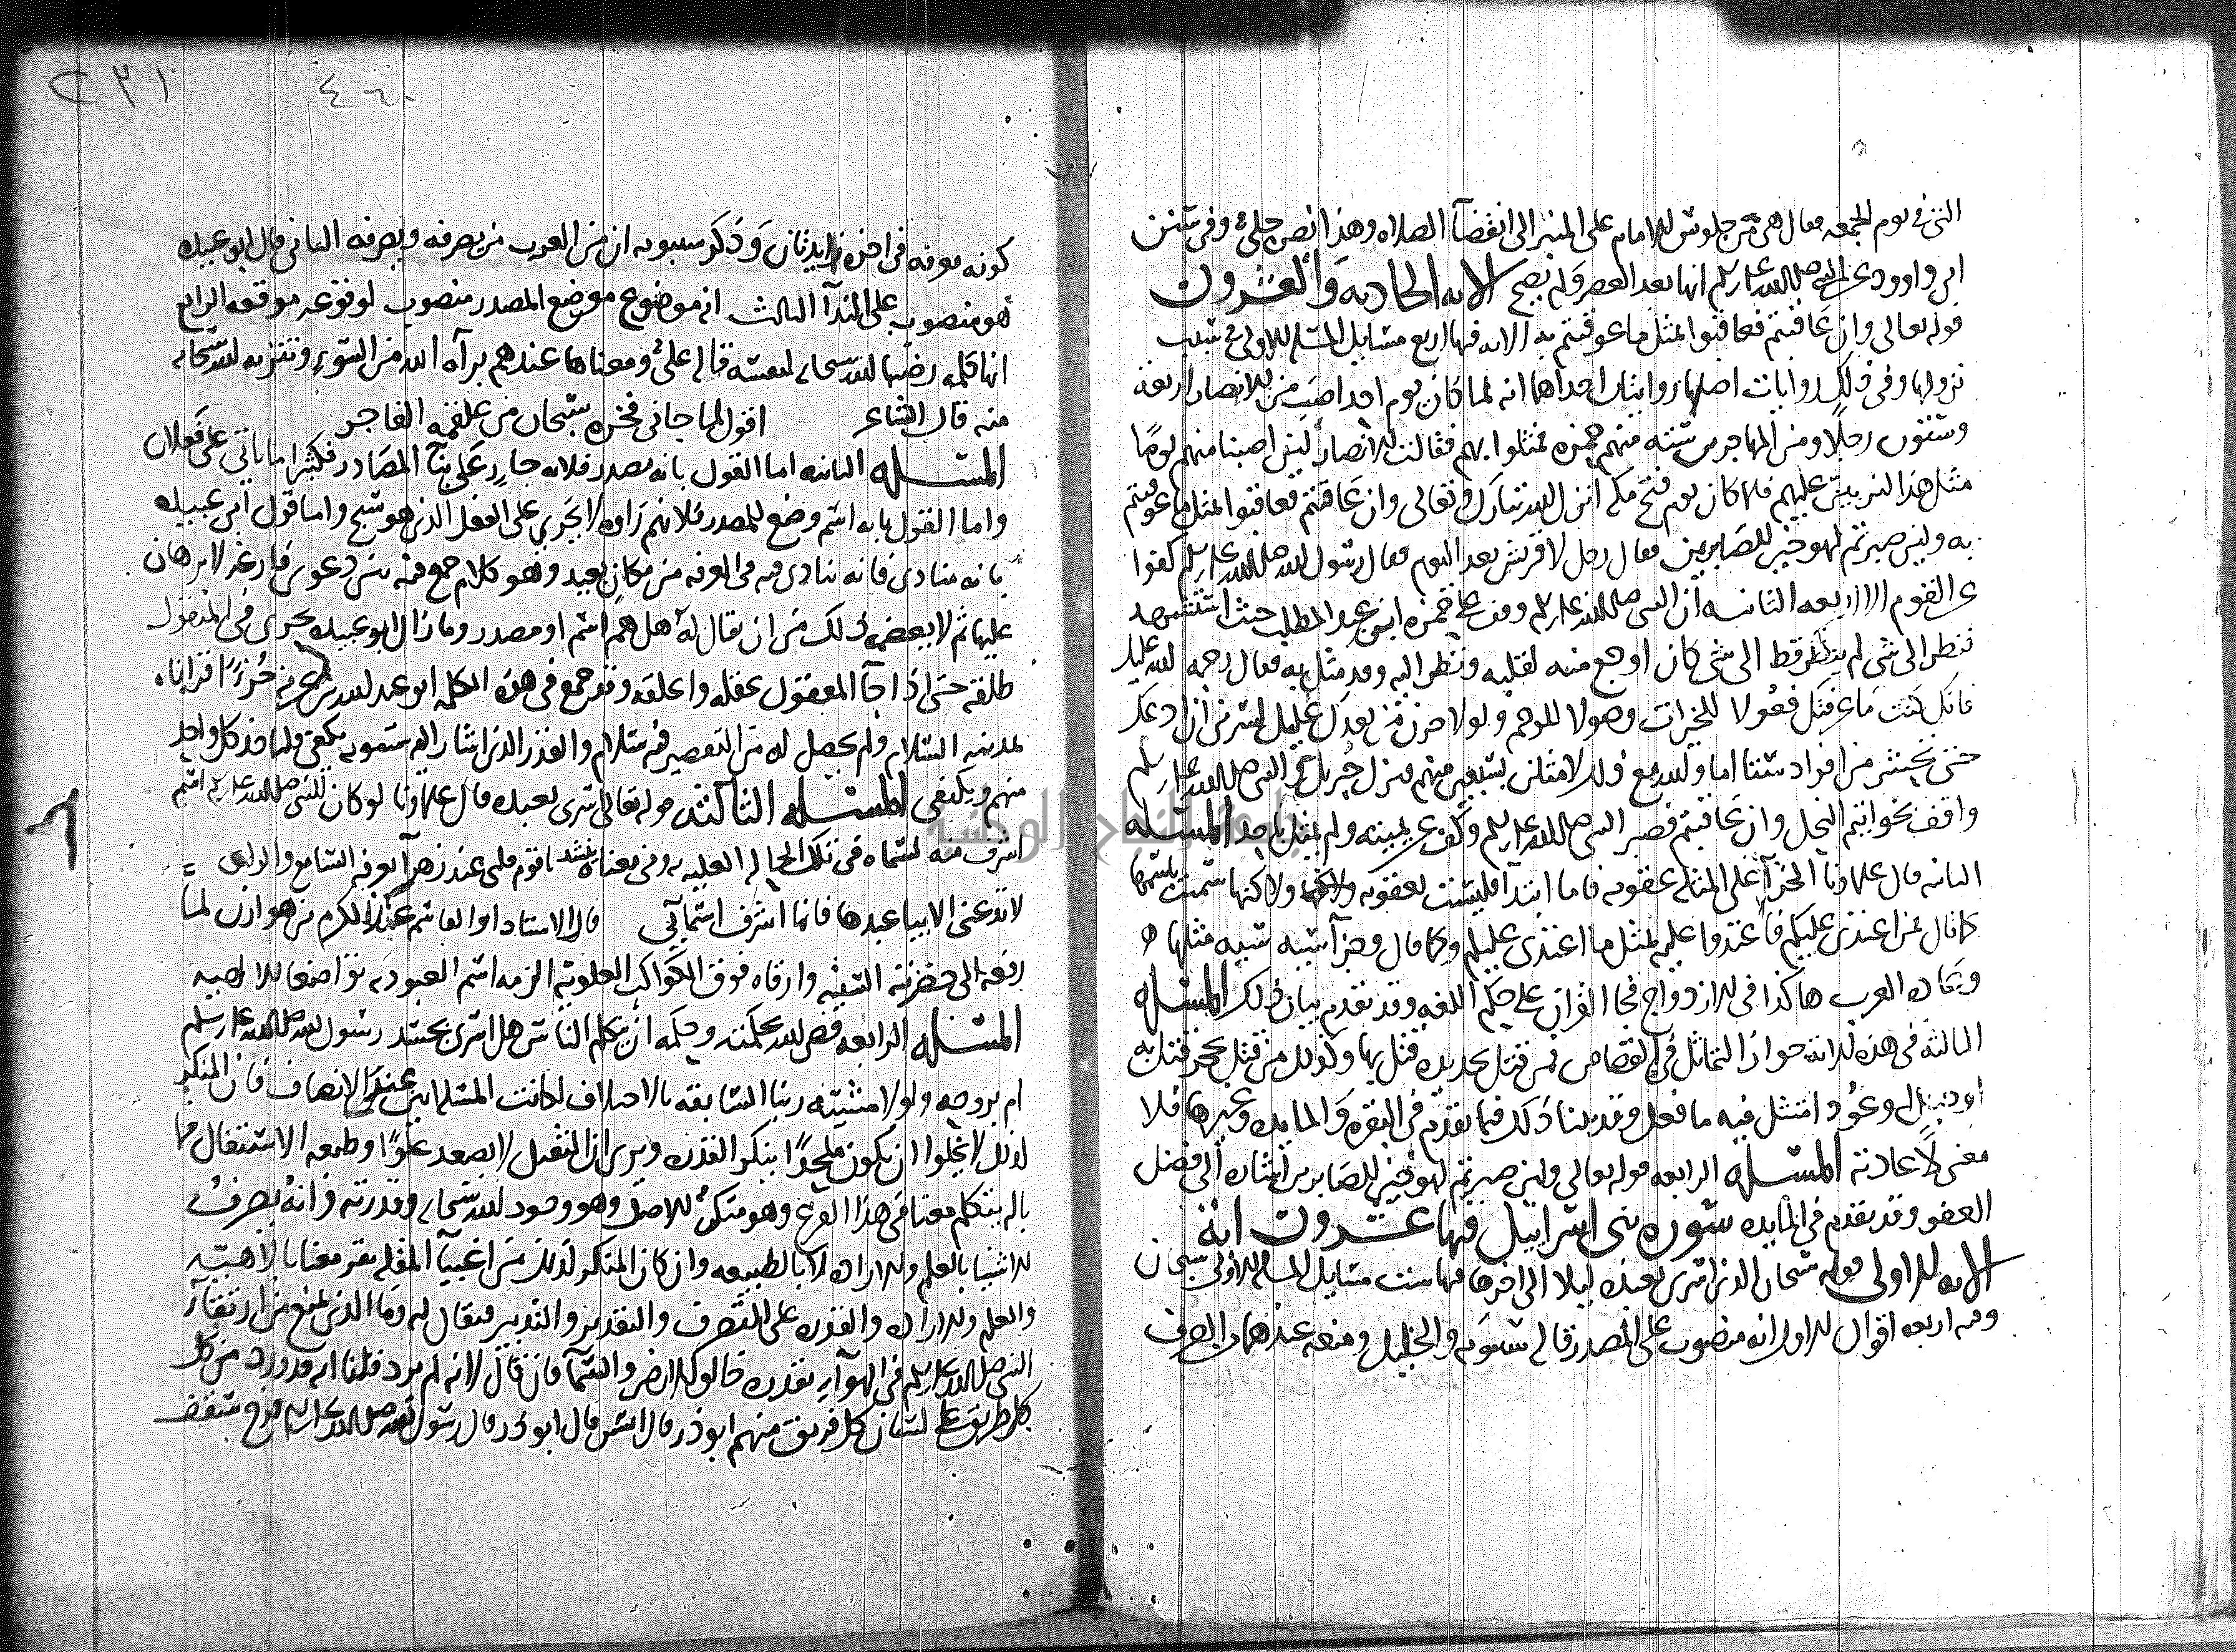 التي في يوم الجمعه فقال هي من جلوس الامام على المنبر الى انقضآ الصلاه وهذا نص جلي وفي سنن
ابي داوود عن النبي صلى الله عليه وسلم انها بعد العصر ولم يصح الايه الحاديه والعشرون
قوله تعالى وان عاقبتم فعاقبوا بمثل ما عوقبتم به الايه فيها اربع مسايل المسله الاولى في سبب
نزولها وفي ذلك روايات اصلها روايتان احداهما انه لما كان يوم احد اصيب من الانصار اربعه
وستون رجلا ومن المهاجرين سته منهم حمزه فمثلوا بهم فقالت الانصار لين اصبنا منهم يومًا
مثل هذا لنربين عليهم فلما كان يوم فتح مكه انزل الله تبارك وتعالى وان عاقبتم فعاقبوا بمثل ما عوقبتم
به ولين صبرتم لهو خير للصابرين فقال رجل لا قريش بعد اليوم فقال رسول الله صلى الله عليه وسلم كفوا
عن القوم الا اربعه الثانيه ان النبي صلى الله عليه وسلم وقف على حمزه ابن عبد المطلب حيث استشهد
فنظر الى شي لم ينظر قط الى شي كان اوجع منه لقلبه ونظر اليه وقد مثل به فقال رحمه الله عليك
فانك كنت ما عرفتك فعولا للخيرات وصولا للرحم ولولا حزن من بعدك عليك لسرني ان ادعك
حتى تحشر من افراد شتى اما والله مع ذلك لامثلن بسبعين منهم فنزل جبريل على النبي صلى الله عليه وسلم
واقف بخواتيم النحل وان عاقبتم فصبر النبي صلى الله عليه وسلم وكفر عن يمينه ولم يمثل باحد المسله
الثانيه قال علماونا الجزآ على المثله عقوبه فاما ابتدآ فليست بعقوبه ولاكنها سميت باسمها
كما قال فمن اعتدى عليكم فاعتدوا عليه بمثل ما اعتدى عليكم وكما قال وجزآ سيه سيه مثلها
وعاده العرب هاكذا في الازدواج فجا القران على حكم اللغه وقد تقدم بيان ذلك المسله
الثالثه في هذه الايه جواز التماثل في القصاص فمن قتل بحديده قتل بها وكذلك من قتل بحجر قتل به
او بحبل وعود امتثل فيه ما فعل وقد بينا ذلك فيما تقدم في البقره والمايده وغيرها فلا
معنى لاعادته المسله الرابعه قوله تعالى ولين صبرتم لهو خير للصابرين اشاره الى فضل
العفو وقد تقدم في المايده سوره بني اسراييل فيها عشرون ايه
الايه الاولى قوله سبحان الذي اسرى بعبده ليلا الى اخرها فيها ست مسايل المسله الاولى سبحان
وفيه اربعه اقوال الاول انه منصوب على المصدر قاله سيبويه والخليل ومنعه عندهما من الصرف
كونه معرفه في اخره زايدتان وذكر سيبويه ان من العرب من يصرفه ويصرفه الثاني قال ابو عبيده
هو منصوب على الندآ الثالث انه موضوع موضع المصدر منصوب لوقوعه موقعه الرابع
انها كلمه رضيها الله سبحانه لنفسه قاله علي ومعناها عندهم برآه الله من السوء وتنزيه الله سبحانه
منه قال الشاعر اقول لما جاني فخره سبحان من علقمه الفاجر
المسله الثانيه اما القول بانه مصدر فلانه جارٍ على بنآ المصادر فكثيرا ما ياتي على فعلان
واما القول بانه اسم وضع للمصدر فلانهم راوه لا يجري على الفعل الذي هو سبح واما قول ابي عبيده
بانه منادى فانه ينادى فيه في المعرفه من مكان بعيد وهو كلام جمع فيه بين دعوى فارغه لا برهان
عليها ثم لا يعصمه ذلك من ان يقال له هل هو اسم او مصدر وما زال ابو عبيده يجري في المنقول
طلقه حتى اذا جآ المعقول عقله واعلقه وقد جمع في هذه الكلمه ابو عبد الله بن عرفه جُزءًا قراناه
بمدينه السلام ولم يحصل له من التقصير فيه سلام والقدر الذي اشار اليه سيبويه يكفي فلياخذ كل واحد
منهم ويكتفي المسله الثالثه قوله تعالى اسرى بعبده قال علماونا لو كان للنبي صلى الله عليه وسلم اسم
اشرف منه لسماه في تلك الحاله العليه به وفي معناه ينشد يا قوم قلبي عند زهرآ يعرفه السامع والراي
لا تدعني الا بيا عبدها فانها اشرف اسمآيي قال الاستاد ابو القاسم عبد الكريم بن هوازن لما
رفعه الى حضرته السنيه وارقاه فوق الكواكب العلويه الزمه اسم العبوديه تواضعا للالاهيه
المسله الرابعه قضى الله بحكمته وحكمه ان يتكلم الناس هل اسري بجسد رسول الله صلى الله عليه وسلم
ام بروحه ولولا مشيته ربنا السابقه بالاختلاف لكانت المسله ابين عند الانصاف فان المنكر
لذلك لا يخلوا ان يكون ملحدًا ينكر القدره ويرى ان الثقيل لا يصعد علوًا وطبعه الاستفال فما
باله يتكلم معنا في هذا الفرع وهو منكر للاصل وهو وجود الله سبحانه وقدرته وانه يصرف
الاشيا بالعلم والاراده لا بالطبيعه وان كان المنكر لذلك من اغبيآ المله يقر معنا بالالاهيه
والعلم والاراده والقدره على التصرف والتقدير والتدبير فيقال له وما الذي يمنع من ارتقآ
النبي صلى الله عليه وسلم في الهوآء بقدره خالق الارض والسمآ فان قال لانه لم يرد قلنا انه قد ورد من كل
كل طريق على لسان كل فريق منهم ابو ذر قال انس قال ابو ذر قال رسول الله صلى الله عليه وسلم فرج سقف